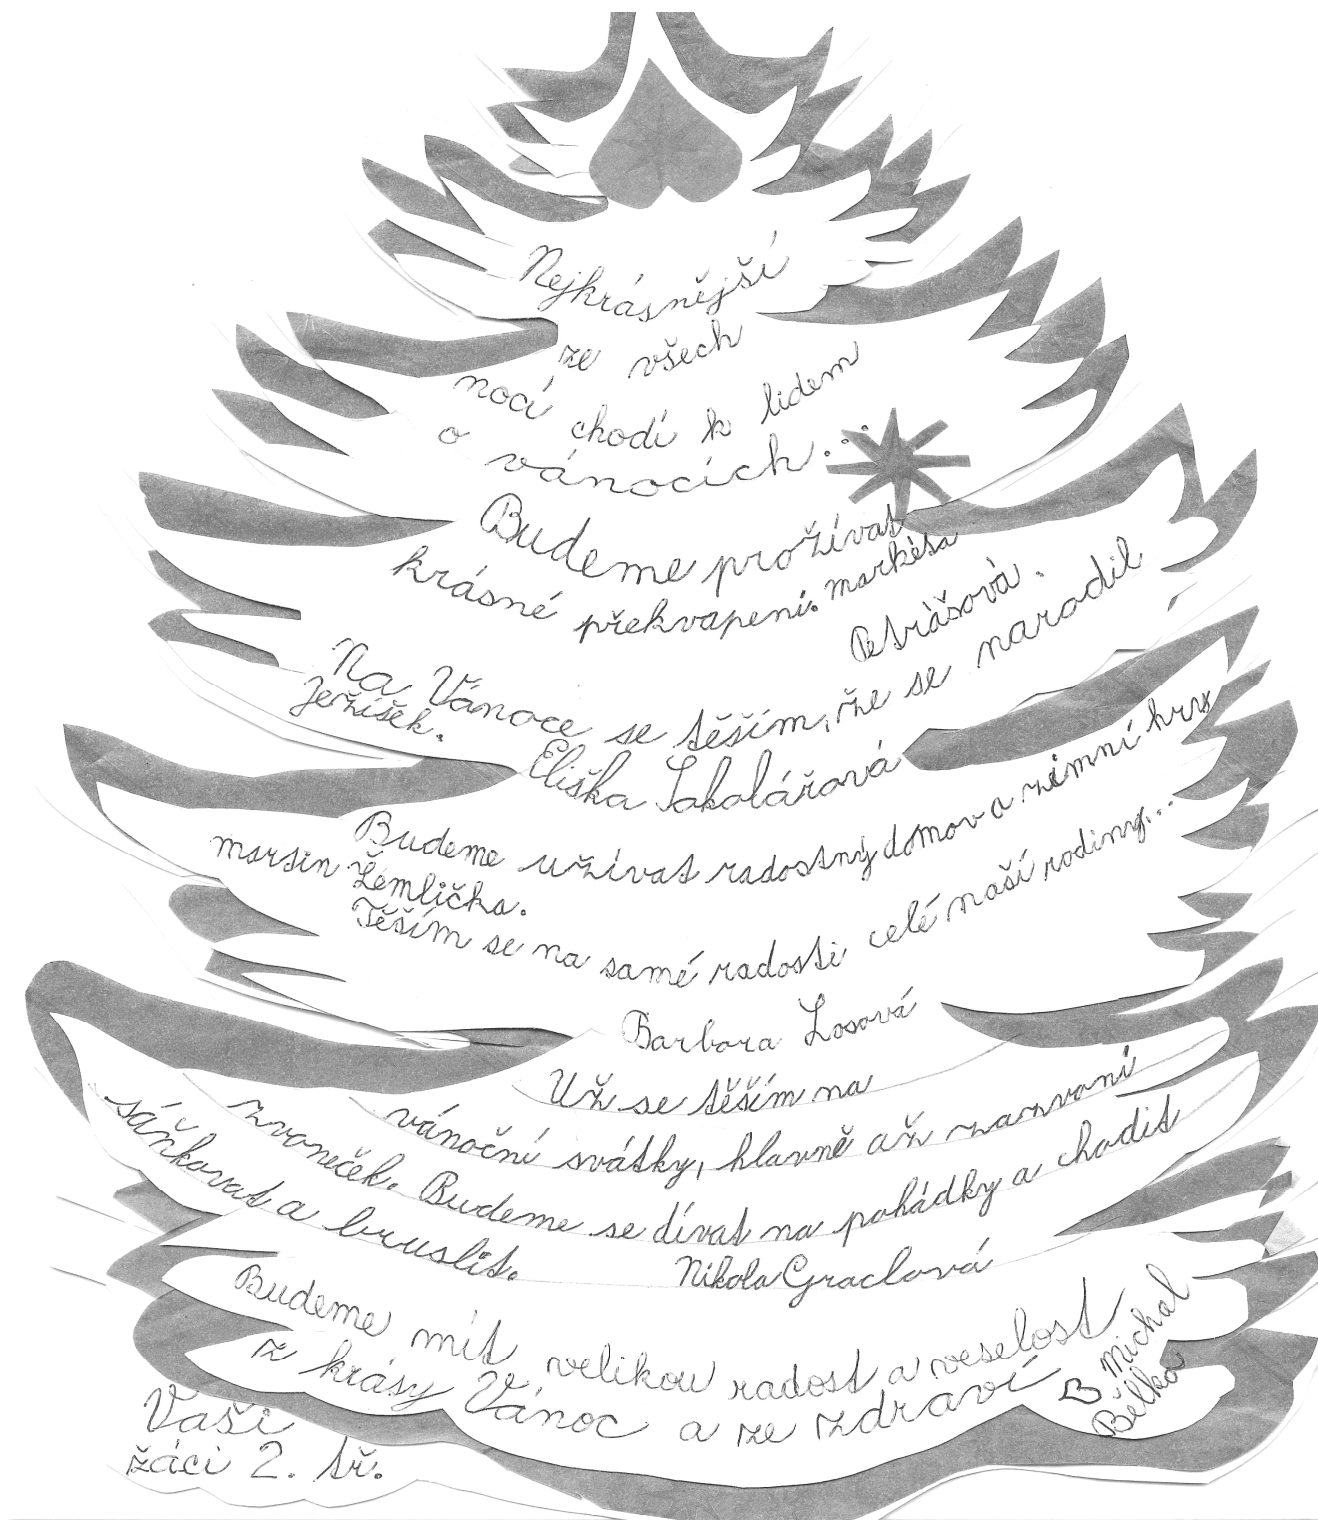 Nejkrásnější
ze všech
nocí chodí k lidem
o vánocích...
Budeme prožívat
krásné překvapení. Markéta
Petrášová.
Na Vánoce se těším, že se narodil
Ježíšek.
Eliška Sokolářová
Budeme užívat radostný domov a zimní hry
Martin Žemlička.
Těším se na samé radosti celé naší rodiny...
Barbora Losová
Už se těším na
vánoční svátky, hlavně až zazvoní
zvoneček. Budeme se dívat na pohádky a chodit
sáňkovat a bruslit.
Nikola Graclová
Budeme mít velikou radost a veselost
z krásy Vánoc a ze zdraví
Michal
Bělka
Vaši
žáci 2. tř.